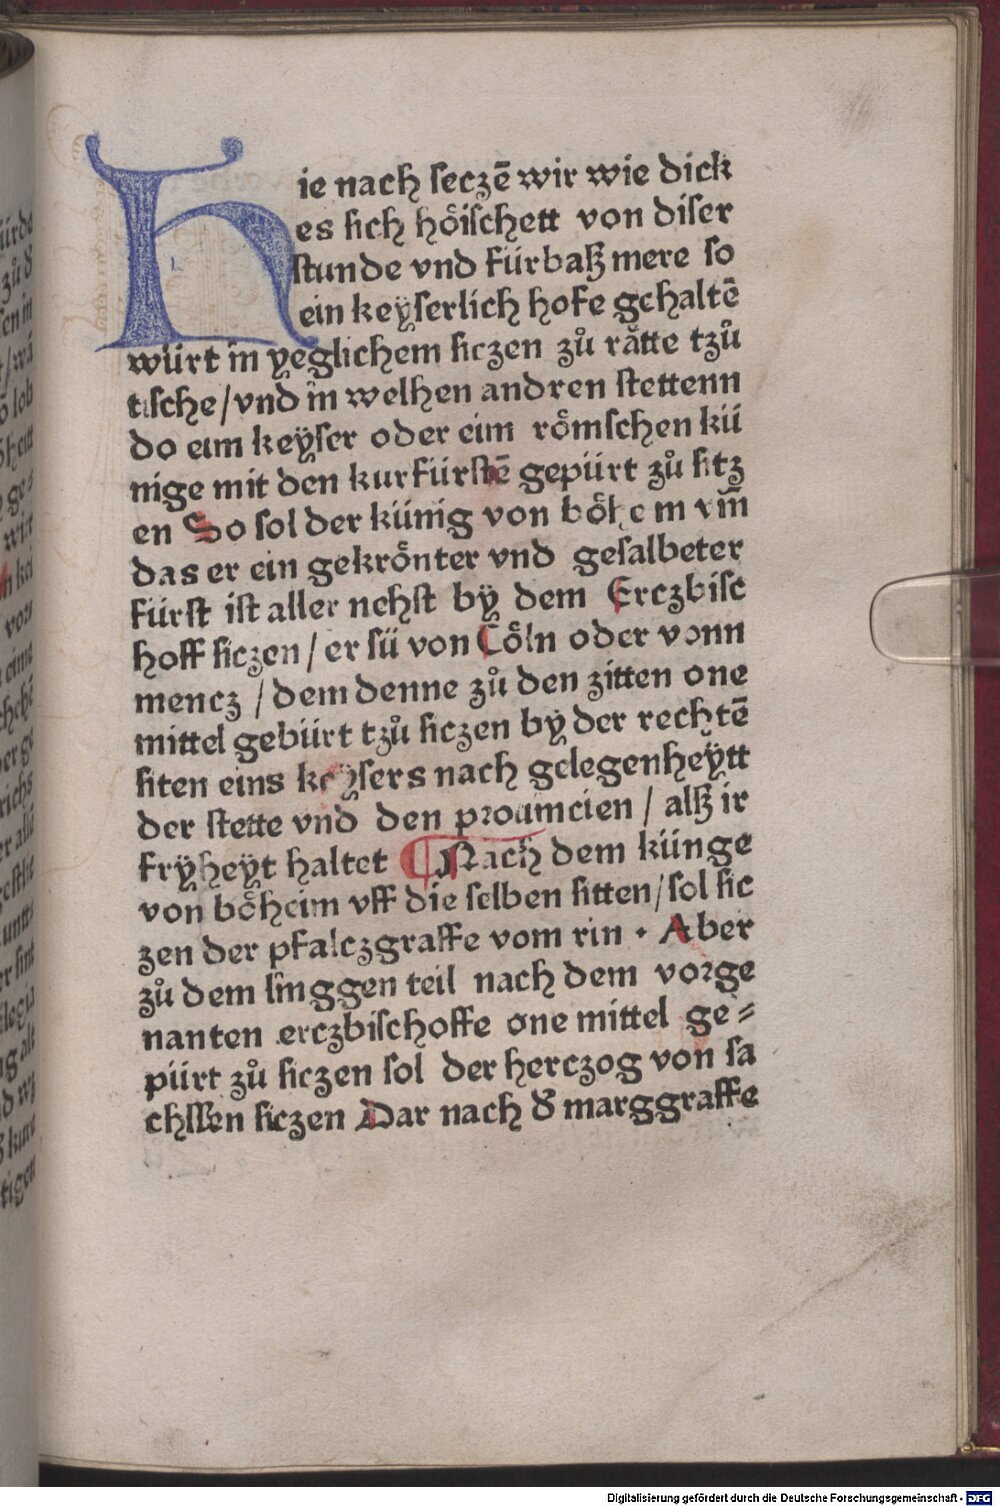 Hie nach seczē wir wie dick
es sich hȫischett von diser
stunde vnd fürbaß mere so
ein keyserlich hofe gehaltē
würt in yeglichem siczen zů rätte tzů
tische / vnd in welhen andren stettenn
do eim keyser oder eim römschen kü
nige mit den kurfürstē gepürt zů sitz
en So sol der künig von böhem vm̄
das er ein gekrönter vnd gesalbeter
fürst ist aller nehst bÿ dem Erczbisc
hoff siczen / er sü von Cöln oder vonn
mencz / dem denne zů den zitten one
mittel gebürt tzů siczen bÿ der rechtē
siten eins keÿsers nach gelegenheÿtt
der stette vnd den prouincien / alß ir
frÿheÿt haltet ¶ Nach dem künge
von böheim vff die selben sitten / sol sic
zen der pfalczgraffe vom rin · Aber
zů dem linggen teil nach dem vorge
nanten erczbischoffe one mittel ge⸗
pürt zů siczen sol der herczog von sa
chssen siczen Dar nach d̕ marggraffe
Digitalisierung gefördert durch die Deutsche Forschungsgemeinschaft - DFG